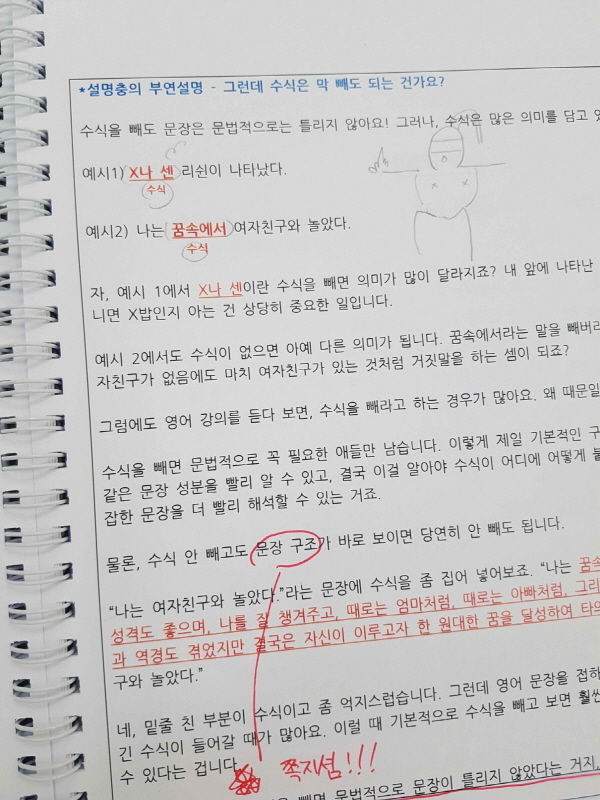 *설명충의 부연설명 - 그런데 수식은 막 빼도 되는 건가요?
수식을 빼도 문장은 문법적으로는 틀리지 않아요! 그러나, 수식은 많은 의미를 담고 있
예시1) X나 센 리쉰이 나타났다.
수식
예시2) 나는 꿈속에서 여자친구와 놀았다.
수식
자, 예시 1에서 X나 센이란 수식을 빼면 의미가 많이 달라지죠? 내 앞에 나타난
니면 X밥인지 아는 건 상당히 중요한 일입니다.
예시 2에서도 수식이 없으면 아예 다른 의미가 됩니다. 꿈속에서라는 말을 빼버리
자친구가 없음에도 마치 여자친구가 있는 것처럼 거짓말을 하는 셈이 되죠?
그럼에도 영어 강의를 듣다 보면, 수식을 빼라고 하는 경우가 많아요. 왜 때문일
수식을 빼면 문법적으로 꼭 필요한 애들만 남습니다. 이렇게 제일 기본적인 구
같은 문장 성분을 빨리 알 수 있고, 결국 이걸 알아야 수식이 어디에 어떻게 붙
잡한 문장을 더 빨리 해석할 수 있는 거죠.
물론, 수식 안 빼고도 문장 구조가 바로 보이면 당연히 안 빼도 됩니다.
“나는 여자친구와 놀았다.”라는 문장에 수식을 좀 집어 넣어보죠. “나는 꿈속
성격도 좋으며, 나를 잘 챙겨주고, 때로는 엄마처럼, 때로는 아빠처럼, 그리
과 역경도 겪었지만 결국은 자신이 이루고자 한 원대한 꿈을 달성하여 타의
구와 놀았다.”
네, 밑줄 친 부분이 수식이고 좀 억지스럽습니다. 그런데 영어 문장을 접하
긴 수식이 들어갈 때가 많아요. 이럴 때 기본적으로 수식을 빼고 보면 훨씬
수 있다는 겁니다.
쪽지셤!!!
빼면 문법적으로 문장이 틀리지 않았다는 거지,